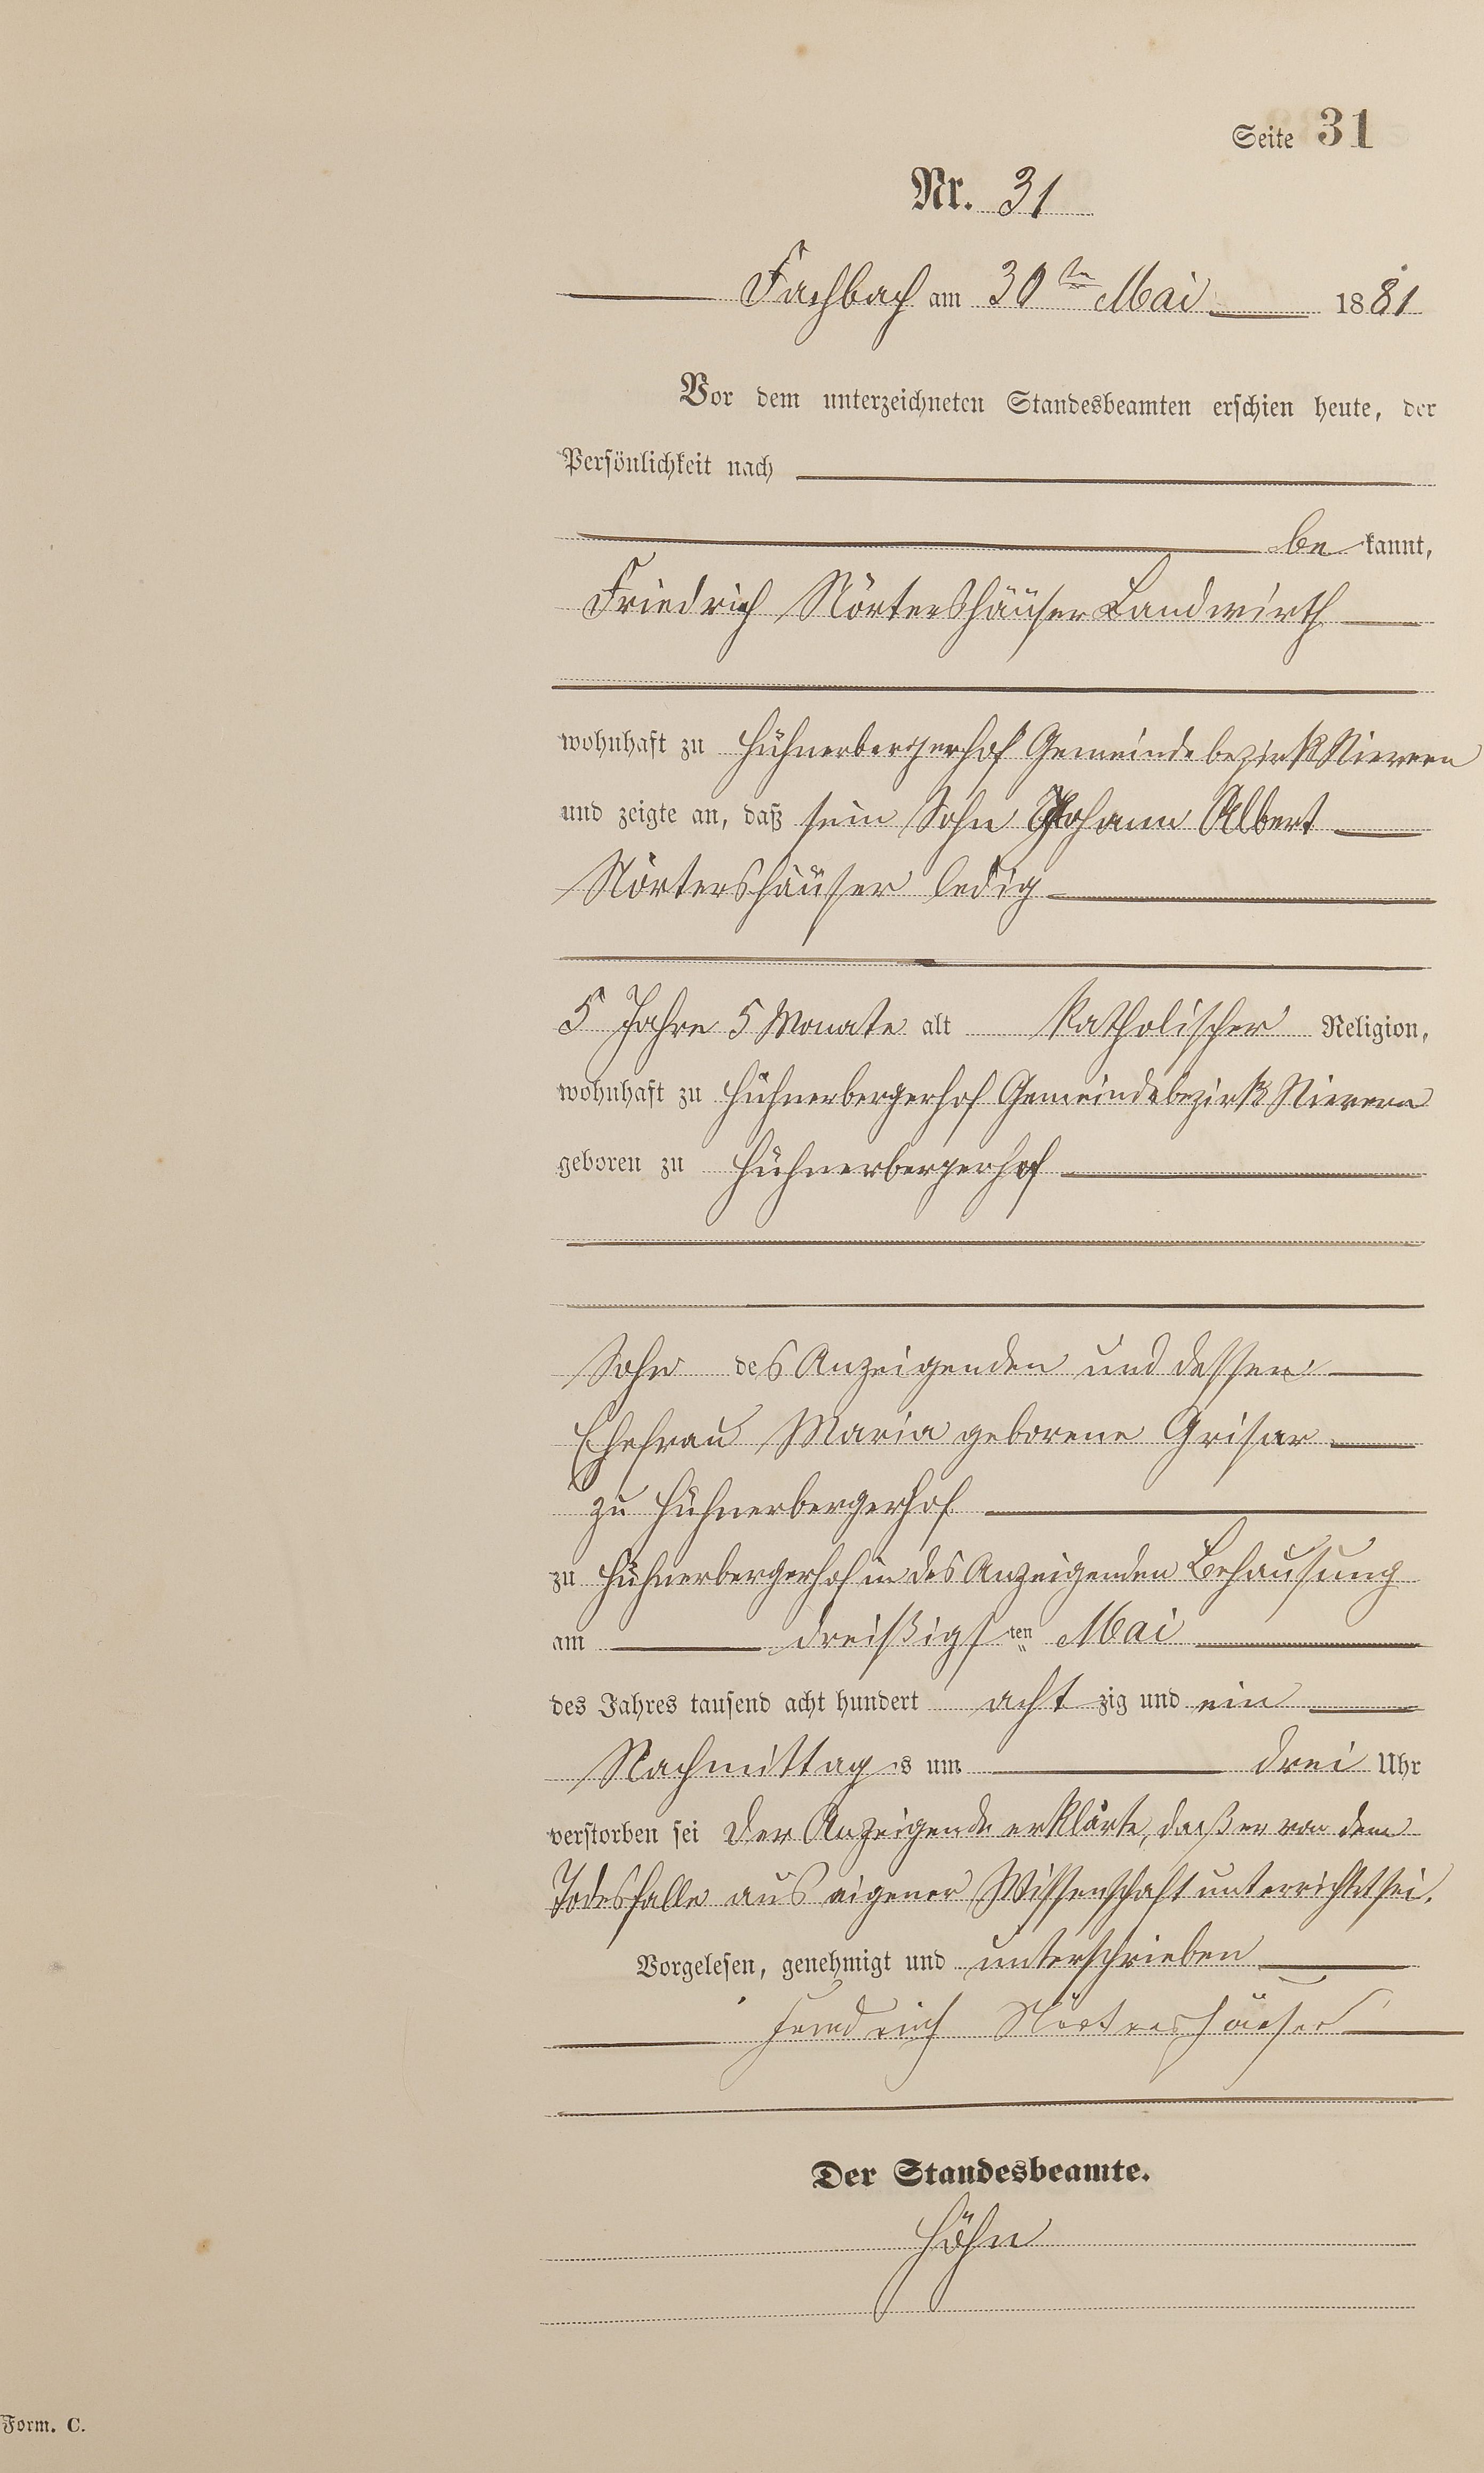 Seite 31
Nr. 31
Fachbach am 30ten Mai 1881
Vor dem unterzeichneten Standesbeamten erschien heute, der
Persönlichkeit nach
be kannt,
Friedrich Nörtershäuser Landwirth
wohnhaft zu Hühnerbergerhof Gemeindebezirk Nievern
und zeigte an, daß sein Sohn Johann Albert
Nörtershäuser ledig
5 Jahre 5 Monate alt katholischer Religion,
wohnhaft zu Hühnerbergerhof Gemeindebezirk Nievern
geboren zu Hühnerbergerhof
Sohn des Anzeigenden und dessen
Ehefrau Maria geborene Grisar
zu Hühnerbergerhof
zu Hühnerbergerhof in des Anzeigenden Behausung
am dreißigsten Mai
des Jahres tausend acht hundert acht zig und ein
Nachmittags um drei Uhr
verstorben sei Der Anzeigende erklärte, daß er von dem
Todesfalle aus eigener Wissenschaft unterrichtet sei.
Vorgelesen, genehmigt und unterschrieben
Friedrich Nörtershäuser
Der Standesbeamte.
Höhn
Form. C.